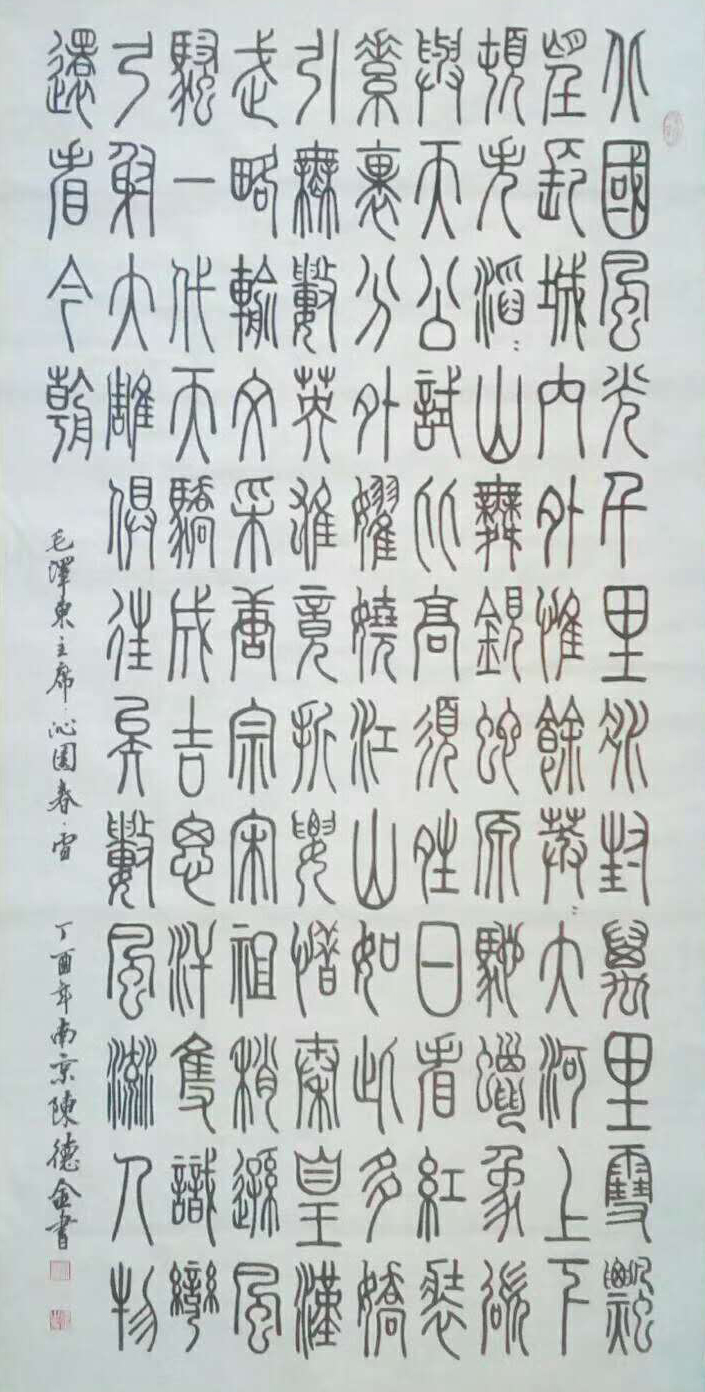 北國風光千里冰封萬里雪飄
望長城內外惟餘莽〻大河上下
頓失滔〻山舞銀蛇原馳蠟象欲
與天公試比高須晴日看紅裝
素裹分外妖嬈江山如此多嬌
引無數英雄競折腰惜秦皇漢
武略輸文采唐宗宋祖稍遜風
騷一代天驕成吉思汗隻識彎
弓射大雕俱往矣數風流人物
還看今朝
毛澤東主席·沁園春·雪 丁酉年南京陳德金書